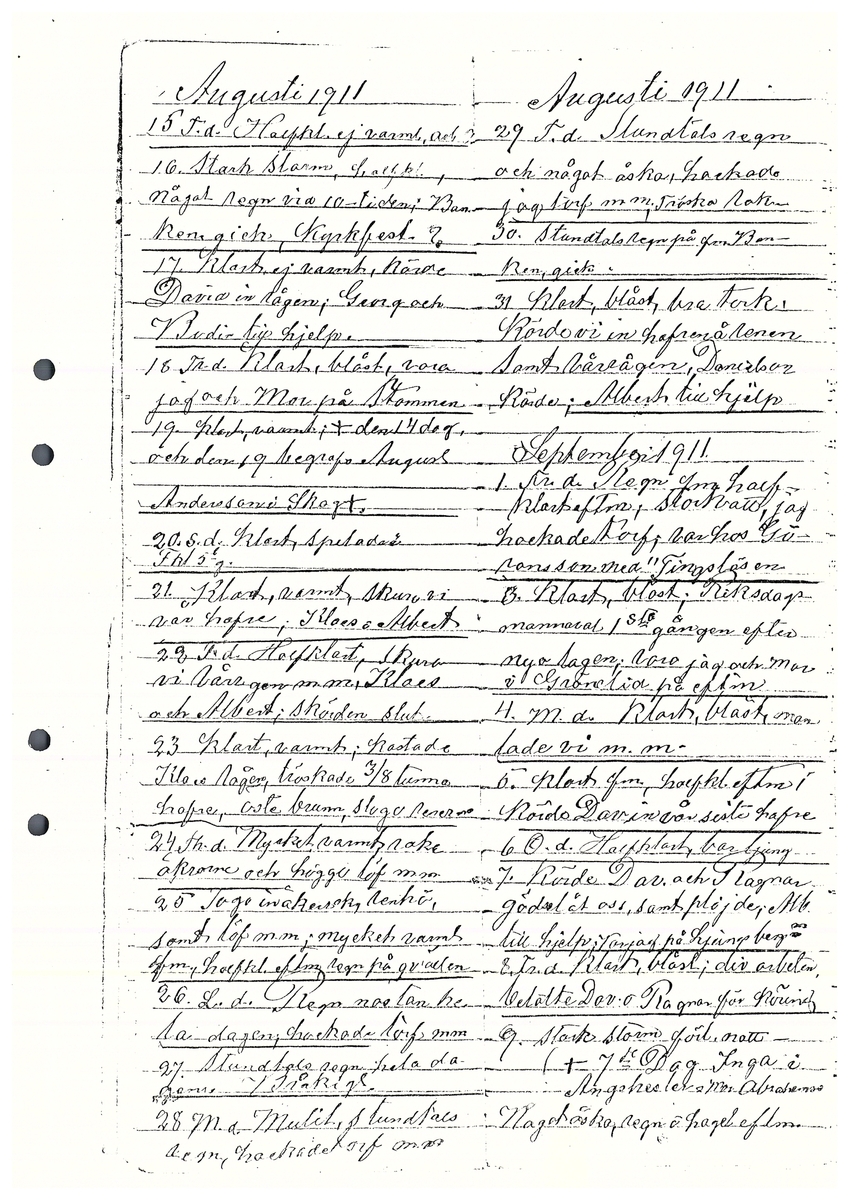 Augusti 1911
15 T.d. Halfkl. ej varmt,
16. Stark storm, halfkl.,
något regn via 10-tiden; Ban-
ken gick, Kyrkfest.
17. Klart, ej varmt, Körde
David in rågen; Georg och
till hjelp.
18 Fr.d. Klart, blåst, voro
jag och Mor på Stommen
19. Klart, varmt; + den 14 dog,
och den 19 begrafs August
Andersson i Skogt.
20. S.d. Klart, spelade i
21. Klart, varmt, skuro vi
vår hafre, Klaes o Albert
22 T.d. Halfklart, skuro
vi vårrågen m m, Klaes
och Albert; skörden slut.
23 Klart, varmt; kastade
Klaes rågen, tröskade 3/8 tunna
hafre, öste brunn, slogo
24 Th.d. Mycket varmt, rake
åkrarne och höggo löf m m
25 Togo in renhö,
samt löf m m; mycket varmt
fm, halfkl. eftm, regn på qvällen
26. L.d. Regn nästan he-
la dagen, hackade törf m m
27 Stundtals regn hela da-
gen.
28 M.d. Mulit, stundtals
regn, hackade törf m m
Augusti 1911
29 T.d. Stundtals regn
och något åska, hackade
jag törf m m, Tröska
30. Stundtals regn på fm Ban-
ken, gick.
31 Klart, blåst, bra tork;
Körde vi in hafren å renen
samt vårrågen, Danielson
Körde; Albert till hjälp
September 1911
1. Fr.d. Regn fm half-
klart eftm; jag
hackade törf; var hos Gö-
ransson med "Tingslösen
3. Klart, blåst; Riksdags-
mannaval 1sta gången efter
nya lagen; voro jag och Mor
i Grönelid på eftm
4. M.d. Klart, blåst, man
lade vi m. m.
5. Klart fm, halfkl. eftm;
Körde Dav. in vår siste hafre
6 O.d. Halfklart, bar ljung
7. Körde Dav. och Ragnar
gödsel åt oss, samt plöjde; Alb.
till hjelp; var jag på
8. Fr.d. Klart, blåst; div. arbeten,
betalte Dav. o Ragnar för körning
9. Stark storm förl. natt
(+ 7de Dog Inga i
Ängshester s Mor. Abrahams
Något åska, regn o hagel eftm.